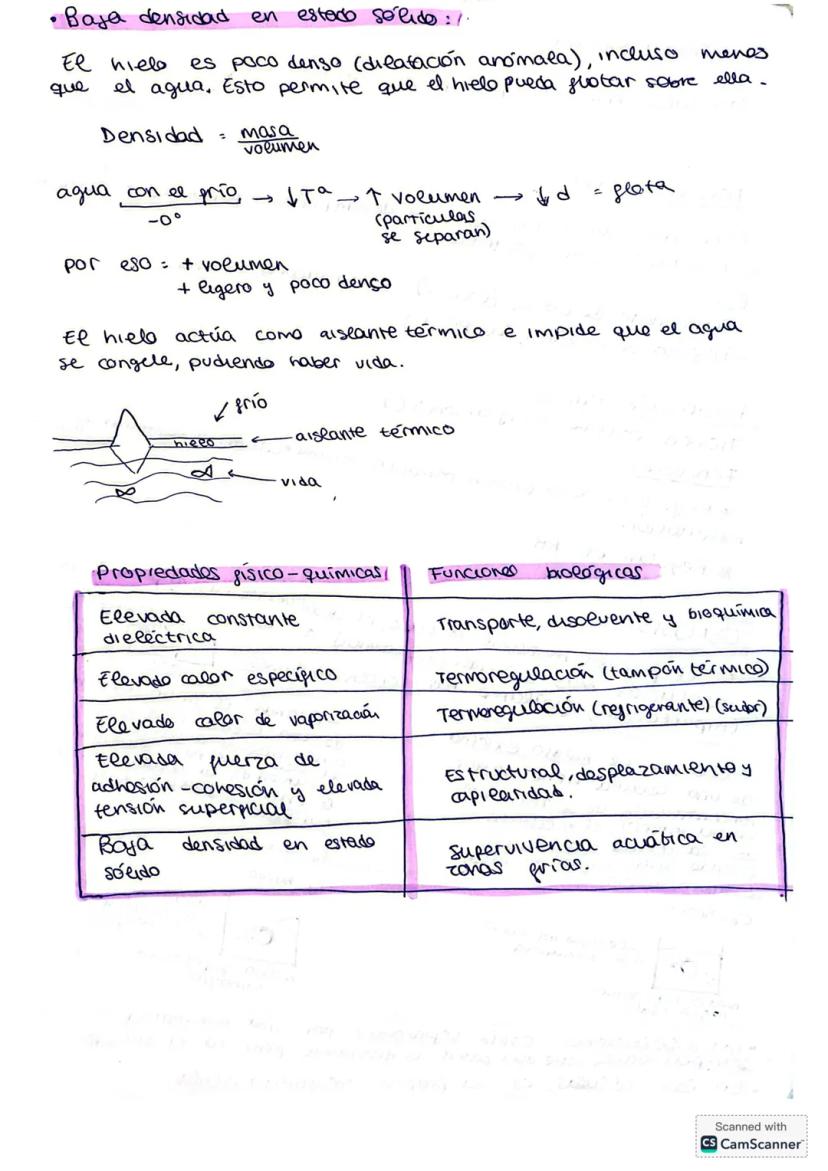 • Baja densidad en estado sólido:
El hielo es poco denso (dilatación anómala), incluso menos
que el agua. Esto permite que el hielo pueda flotar sobre ella.
Densidad = masa
volumen
agua con el frío → ↓Tª → ↑ volumen → ↓d = flota
-0°
(partículas
se separan)
por eso = + volumen
+ ligero y poco denso
El hielo actúa como aislante térmico e impide que el agua
se congele, pudiendo haber vida.
frío
hielo ← aislante térmico
← vida
Propiedades físico-químicas Funciones biológicas
Elevada constante
dieléctrica
Transporte, disolvente y bioquímica
Elevado calor específico
Termoregulación (tampón térmico)
Elevado calor de vaporización
Termoregulación (refrigerante) (sudor)
Elevada fuerza de
adhosión-cohesión y elevada
tensión superficial
Estructural, desplazamiento y
capilaridad.
Baja densidad en estado
sólido
Supervivencia acuática en
zonas frías.
Scanned with
CS CamScanner